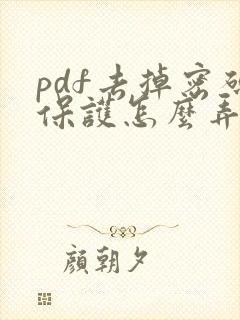 pdf去掉密碼
保護怎麼弄
顏朝夕